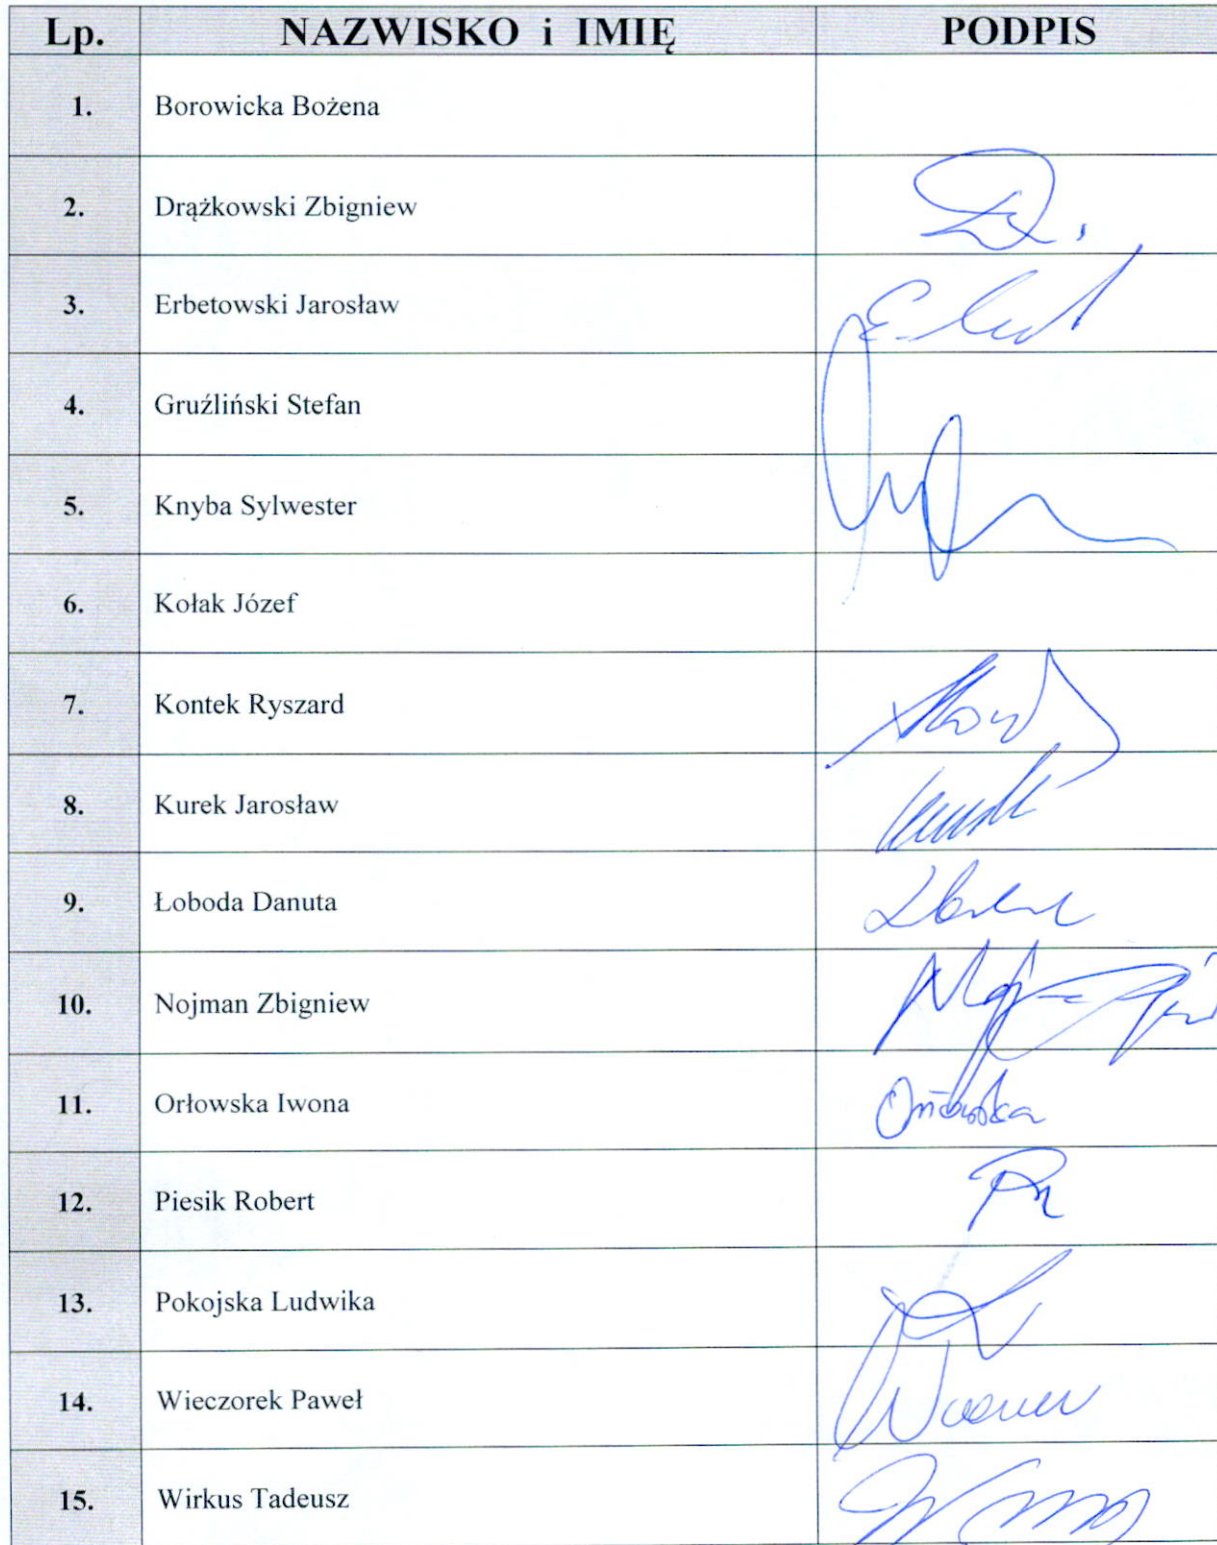 Lp. NAZWISKO i IMIĘ PODPIS
1. Borowicka Bożena
2. Drążkowski Zbigniew
3. Erbetowski Jarosław
4. Gruźliński Stefan
5. Knyba Sylwester
6. Kołak Józef
7. Kontek Ryszard
8. Kurek Jarosław
9. Łoboda Danuta
10. Nojman Zbigniew
11. Orłowska Iwona Orłowska
12. Piesik Robert
13. Pokojska Ludwika
14. Wieczorek Paweł
15. Wirkus Tadeusz